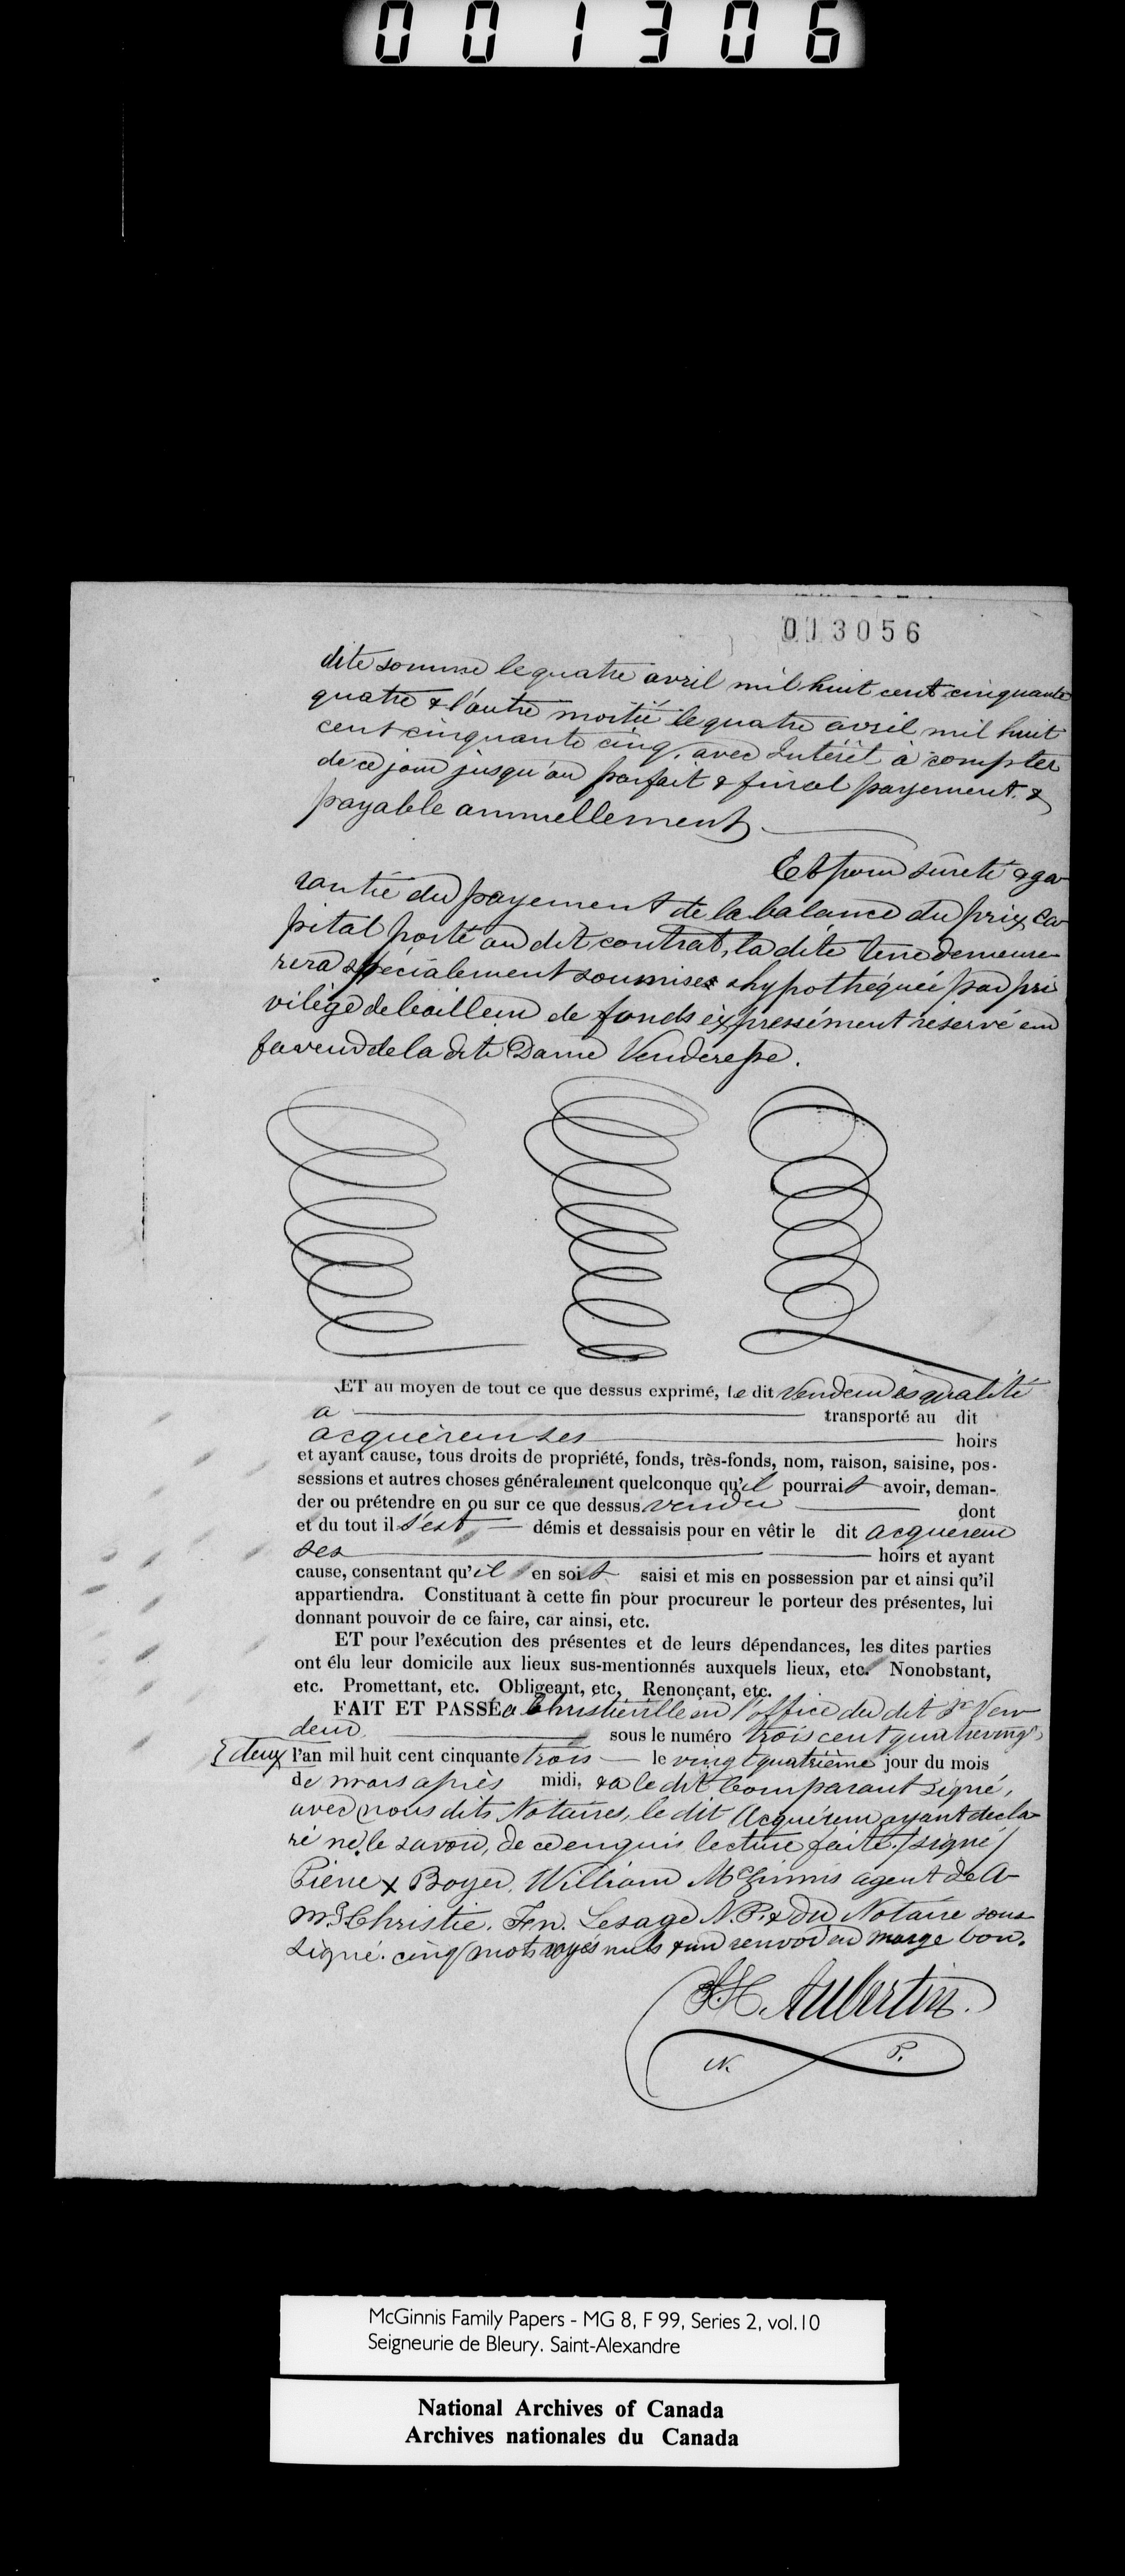 001306
013056
dite somme le quatre avril mil huit cent cinquante
quatre & l'autre moitié le quatre avril mil huit
cent cinquante cinq, avec Intérêt à compter
de ce jour jusqu'au parfait & final payement &
payable annuellement
Et pour sûreté & ga
rantie du payement de la balance du prix ca
pital porté au dit contrat, la dite terre demeure
rera spécialement soumise & hypothéquée par pri
vilège de bailleur de fonds expressément reservé en
faveur de la dite Dame Venderesse.
ET au moyen de tout ce que dessus exprimé, le dit Vendeur es qualité
a transporté au dit
acquéreur ses hoirs
et ayant cause, tous droits de propriété, fonds, très-fonds, nom, raison, saisine, pos-
sessions et autres choses généralement quelconque qu'il pourrait avoir, deman-
der ou prétendre en ou sur ce que dessus vendu dont
et du tout il s'est démis et dessaisis pour en vêtir le dit acquéreur
ses hoirs et ayant
cause, consentant qu'il en soit saisi et mis en possession par et ainsi qu'il
appartiendra. Constituant à cette fin pour procureur le porteur des présentes, lui
donnant pouvoir de ce faire, car ainsi, etc.
ET pour l'exécution des présentes et de leurs dépendances, les dites parties
ont élu leur domicile aux lieux sus-mentionnés auxquels lieux, etc. Nonobstant,
etc. Promettant, etc. Obligeant, etc, Renonçant, etc.
FAIT ET PASSÉ à Christieville en l'office du dit Sr Ven
deur sous le numéro trois cent quatrevingt
deux l'an mil huit cent cinquante trois le vingt quatrième jour du mois
de mars après midi, & a le dit Comparant signé,
avec nous dits Notaires, le dit Acquéreur ayant décla
ré ne le savoir, de ce enquis lecture faite. /signé/
Pierre X Boyer, William McGinnis agent de A
Ms Christie, Frn. Lesage N.P. & du Notaire sous
signé. cinq mots rayés nuls & un renvoi en marge bon.
Aubertin
N. P.
McGinnis Family Papers - MG 8, F 99, Series 2, vol.10
Seigneurie de Bleury. Saint-Alexandre
National Archives of Canada
Archives nationales du Canada